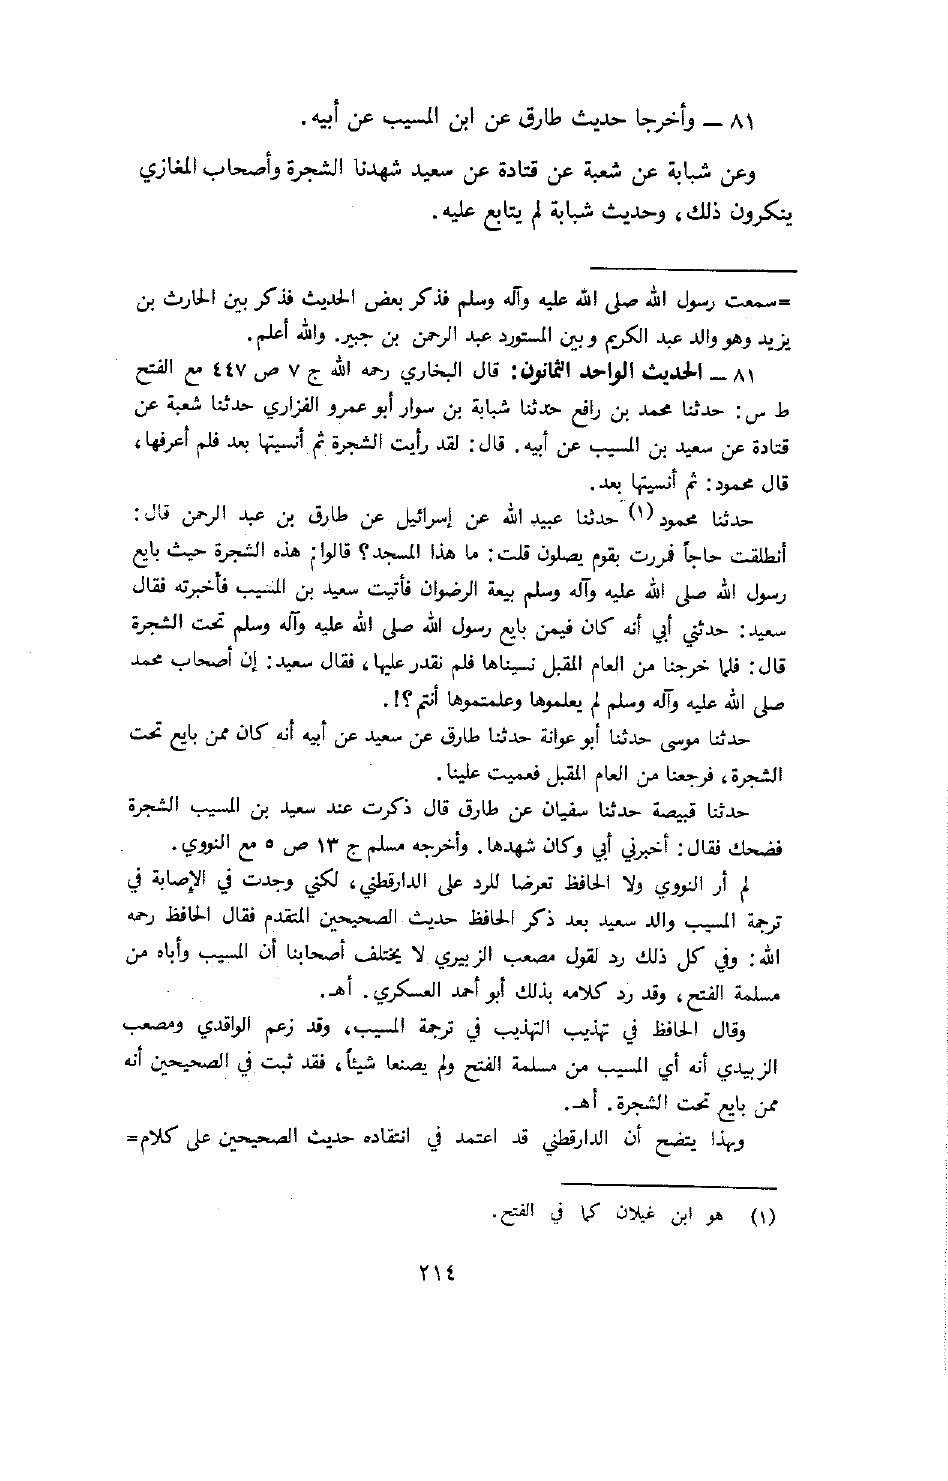 ٨١ ــ وأخرجا حديث طارق عن ابن المسيب عن أبيه.
وعن شبابة عن شعبة عن قتادة عن سعيد شهدنا الشجرة وأصحاب المغازي
ينكرون ذلك، وحديث شبابة لم يتابع عليه.
=سمعت رسول الله صلى الله عليه وآله وسلم فذكر بعض الحديث فذكر بين الحارث بن
يزيد وهو والد عبد الكريم وبين المستورد عبد الرحمن بن جبير. والله أعلم.
٨١ ــ الحديث الواحد الثمانون: قال البخاري رحمه الله ج ٧ ص ٤٤٧ مع الفتح
ط س: حدثنا محمد بن رافع حدثنا شبابة بن سوار أبو عمرو الفزاري حدثنا شعبة عن
قتادة عن سعيد بن المسيب عن أبيه. قال: لقد رأيت الشجرة ثم أنسيتها بعد فلم أعرفها،
قال محمود: ثم أنسيتها بعد.
حدثنا محمود (١) حدثنا عبيد الله عن إسرائيل عن طارق بن عبد الرحمن قال:
أنطلقت حاجاً فررت بقوم يصلون قلت: ما هذا المسجد؟ قالوا: هذه الشجرة حيث بايع
رسول الله صلى الله عليه وآله وسلم بيعة الرضوان فأتيت سعيد بن المسيب فأخبرته فقال
سعيد: حدثني أبي أنه كان فيمن بايع رسول الله صلى الله عليه وآله وسلم تحت الشجرة
قال: فلما خرجنا من العام المقبل نسيناها فلم نقدر عليها، فقال سعيد: إن أصحاب محمد
صلى الله عليه وآله وسلم لم يعلموها وعلمتموها أنتم؟!.
حدثنا موسى حدثنا أبو عوانة حدثنا طارق عن سعيد عن أبيه أنه كان ممن بايع تحت
الشجرة، فرجعنا من العام المقبل فعميت علينا.
حدثنا قبيصة حدثنا سفيان عن طارق قال ذكرت عند سعيد بن المسيب الشجرة
فضحك فقال: أخبرني أبي وكان شهدها. وأخرجه مسلم ج ١٣ ص ٥ مع النووي.
لم أر النووي ولا الحافظ تعرضا للرد على الدارقطني، لكني وجدت في الإصابة في
ترجمة المسيب والد سعيد بعد ذكر الحافظ حديث الصحيحين المتقدم فقال الحافظ رحمه
الله: وفي كل ذلك رد لقول مصعب الزبيري لا يختلف أصحابنا أن المسيب وأباه من
مسلمة الفتح، وقد رد كلامه بذلك أبو أحمد العسكري. أهـ.
وقال الحافظ في تهذيب التهذيب في ترجمة المسيب، وقد زعم الواقدي ومصعب
الزبيدي أنه أي المسيب من مسلمة الفتح ولم يصنعا شيئاً، فقد ثبت في الصحيحين أنه
ممن بايع تحت الشجرة. أهـ.
وبهذا يتضح أن الدارقطني قد اعتمد في انتقاده حديث الصحيحين على كلام=
(١) هو ابن غيلان كما في الفتح.
٢١٤